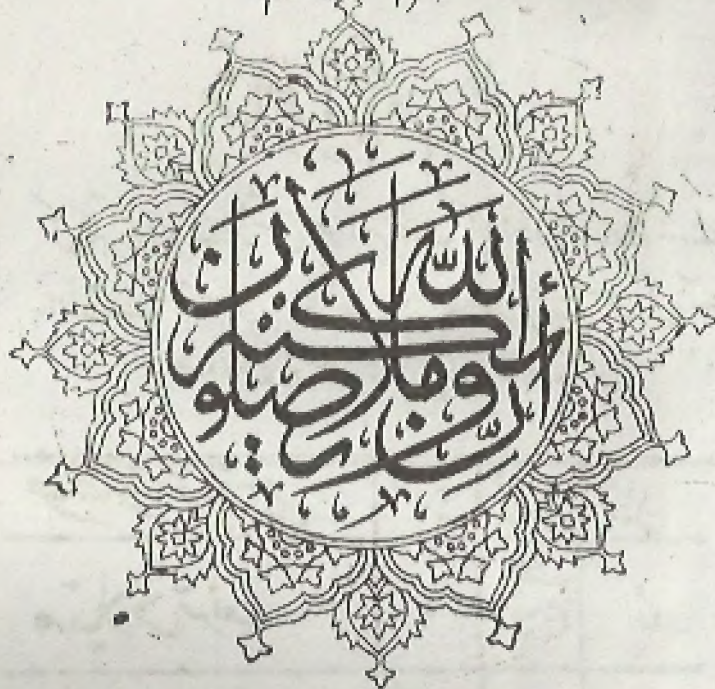 إنّ اللّه وملائكته يصلون